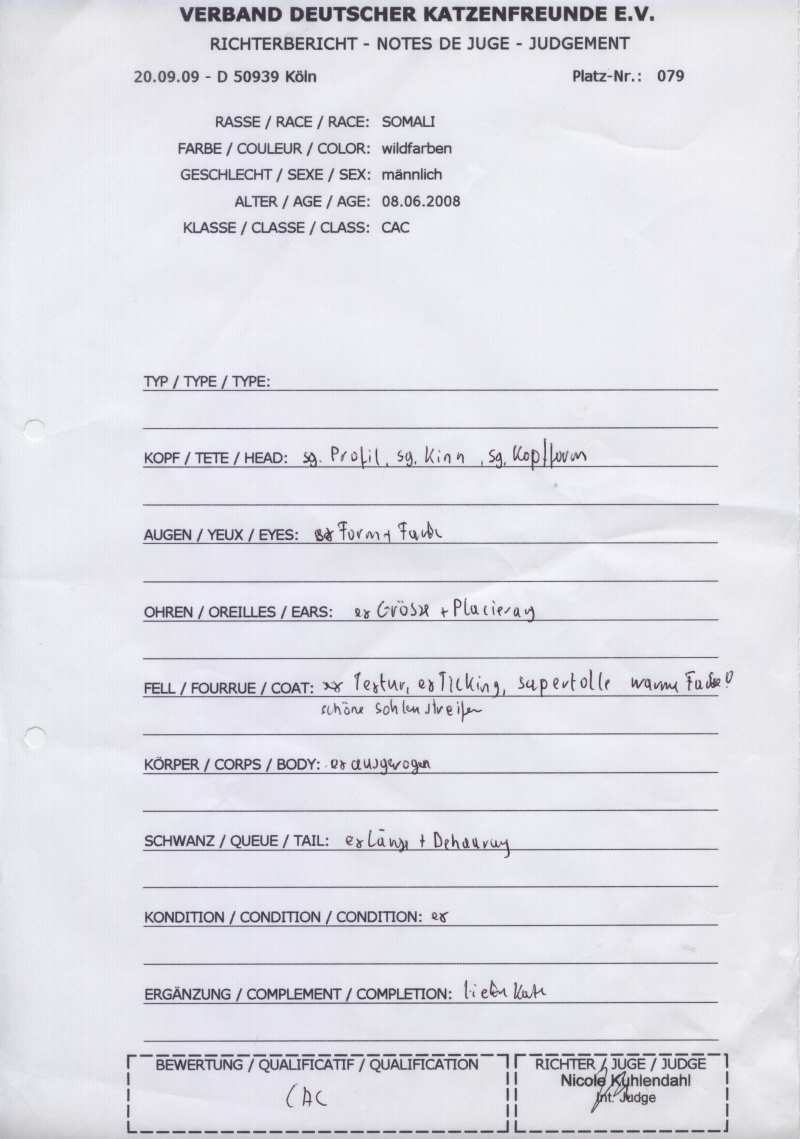 VERBAND DEUTSCHER KATZENFREUNDE E.V.
RICHTERBERICHT - NOTES DE JUGE - JUDGEMENT
20.09.09 - D 50939 Köln Platz-Nr.: 079
RASSE / RACE / RACE: SOMALI
FARBE / COULEUR / COLOR: wildfarben
GESCHLECHT / SEXE / SEX: männlich
ALTER / AGE / AGE: 08.06.2008
KLASSE / CLASSE / CLASS: CAC
TYP / TYPE / TYPE:
KOPF / TETE / HEAD: sg. Profil, sg. Kinn, sg. Kopfform
AUGEN / YEUX / EYES: ex Form + Farbe
OHREN / OREILLES / EARS: ex Grösse + Placierung
FELL / FOURRUE / COAT: ex Textur, ex Ticking, supertolle warme Farbe!
schöne Sohlenstreifen
KÖRPER / CORPS / BODY: ex ausgewogen
SCHWANZ / QUEUE / TAIL: ex Länge + Behaarung
KONDITION / CONDITION / CONDITION: ex
ERGÄNZUNG / COMPLEMENT / COMPLETION: lieber Kater
BEWERTUNG / QUALIFICATIF / QUALIFICATION
CAC
RICHTER / JUGE / JUDGE
Nicole Kuhlendahl
Int. Judge